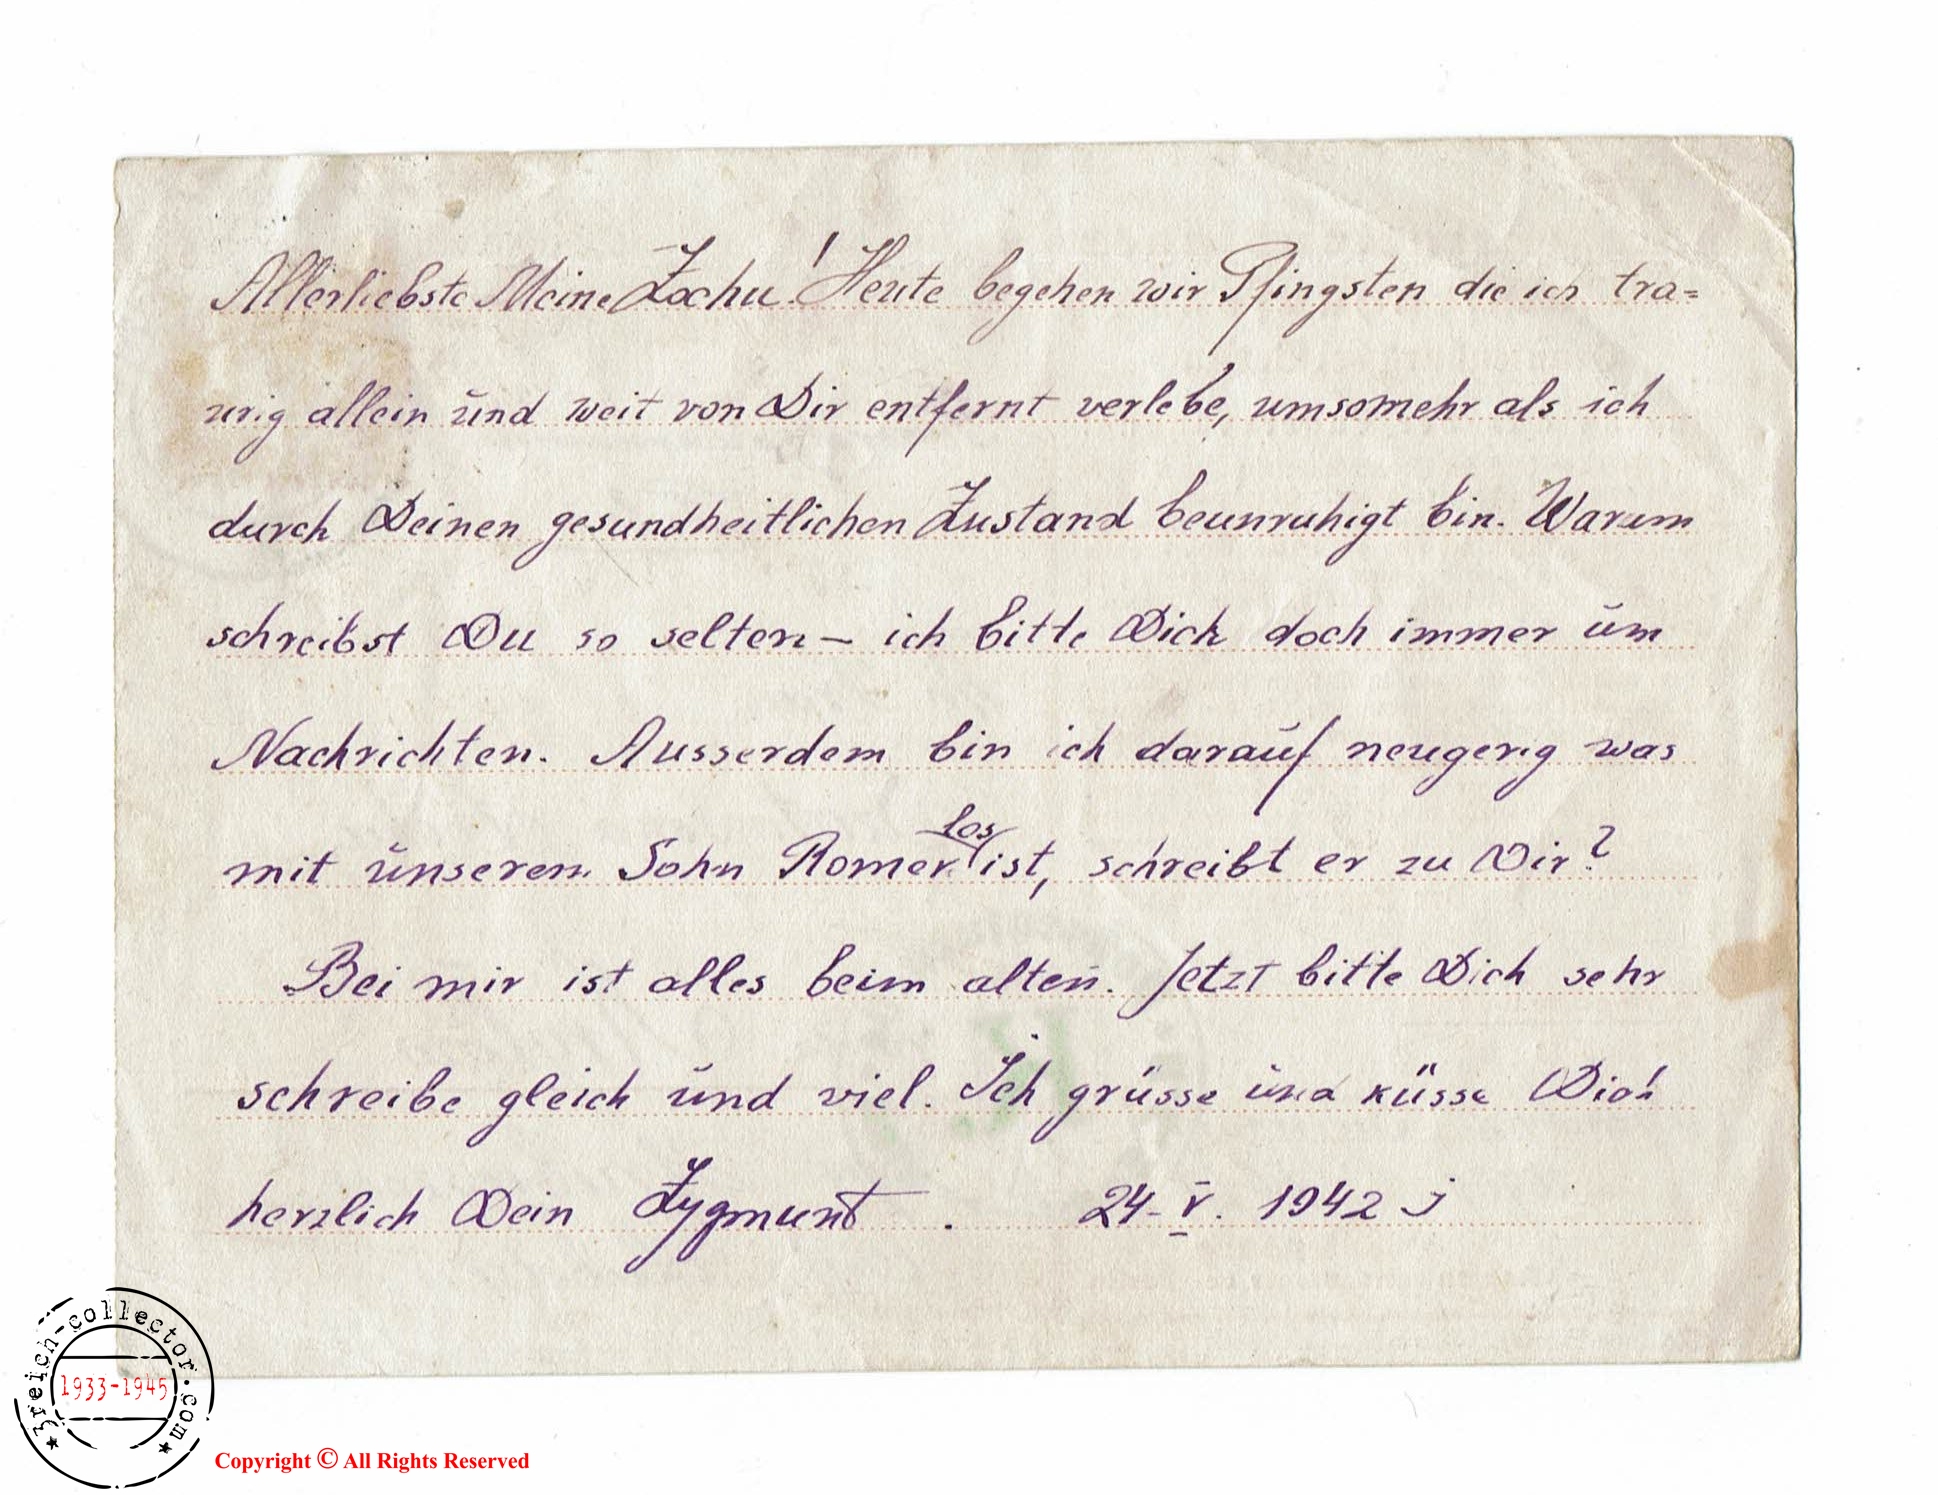 Allerliebste Meine Zochu! Heute begehen wir Pfingsten die ich tra=
urig allein und weit von Dir entfernt verlebe, umsomehr als ich
durch Deinen gesundheitlichen Zustand beunruhigt bin. Warum
schreibst Du so selten – ich bitte Dich doch immer um
Nachrichten. Ausserdem bin ich darauf neugerig was
los
mit unseren Sohn Romek ist, schreibt er zu Dir?
Bei mir ist alles beim alten. Jetzt bitte Dich sehr
schreibe gleich und viel. Ich grüsse und küsse Dich
herzlich Dein Zygmunt. 24-V. 1942 J
3reich-collector.com
1933-1945
Copyright © All Rights Reserved